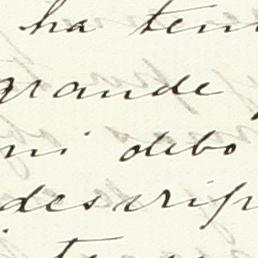 ha ten
grande
ni debo
descrip